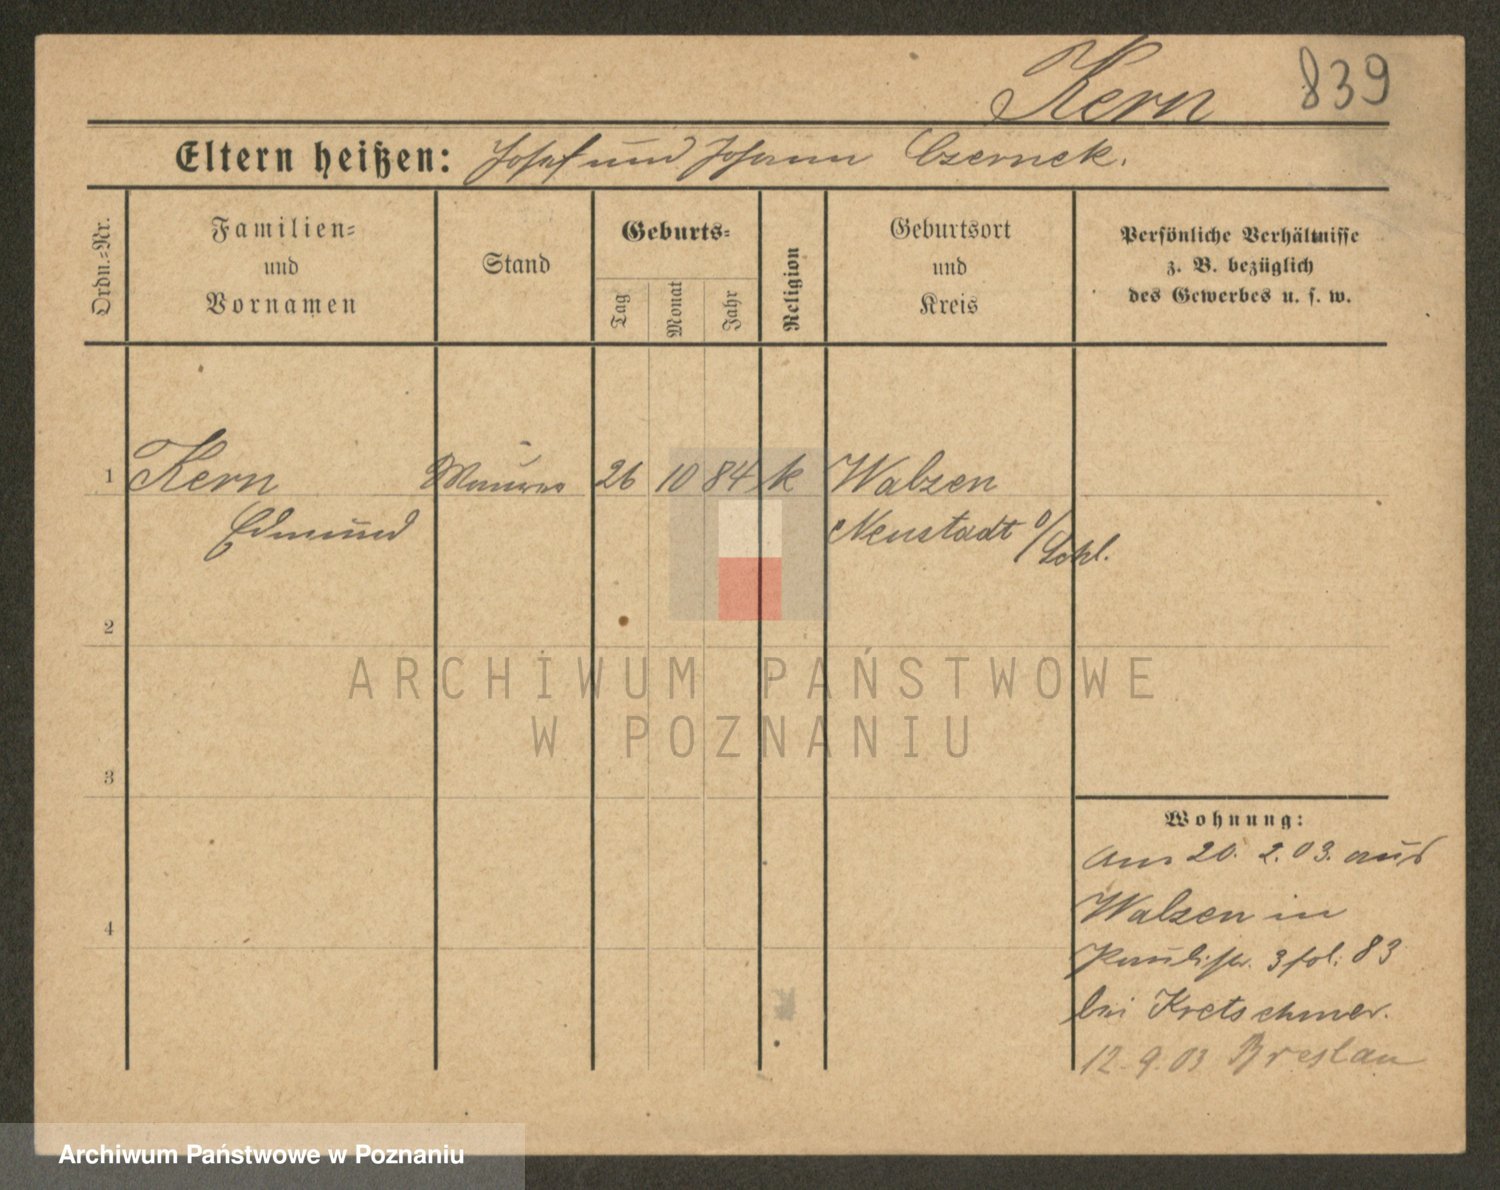 Kern 839
Eltern heißen: Josef und Johann Czernek.
Ordn.-Nr.
Familien=
und
Vornamen
Stand
Geburts=
Tag
Monat
Jahr
Religion
Geburtsort
und
Kreis
Persönliche Verhältnisse
z. B. bezüglich
des Gewerbes u. s. w.
1 Kern Maurer 26 10 84 k Walzen
Edmund Neustadt o/Schl.
2
3
4
Wohnung:
am 20. 2. 03. aus
Walzen in
Paulistr. 3 fol: 83
bei Kretschmer.
12. 9. 03 Breslau
ARCHIWUM PAŃSTWOWE
W POZNANIU
Archiwum Państwowe w Poznaniu